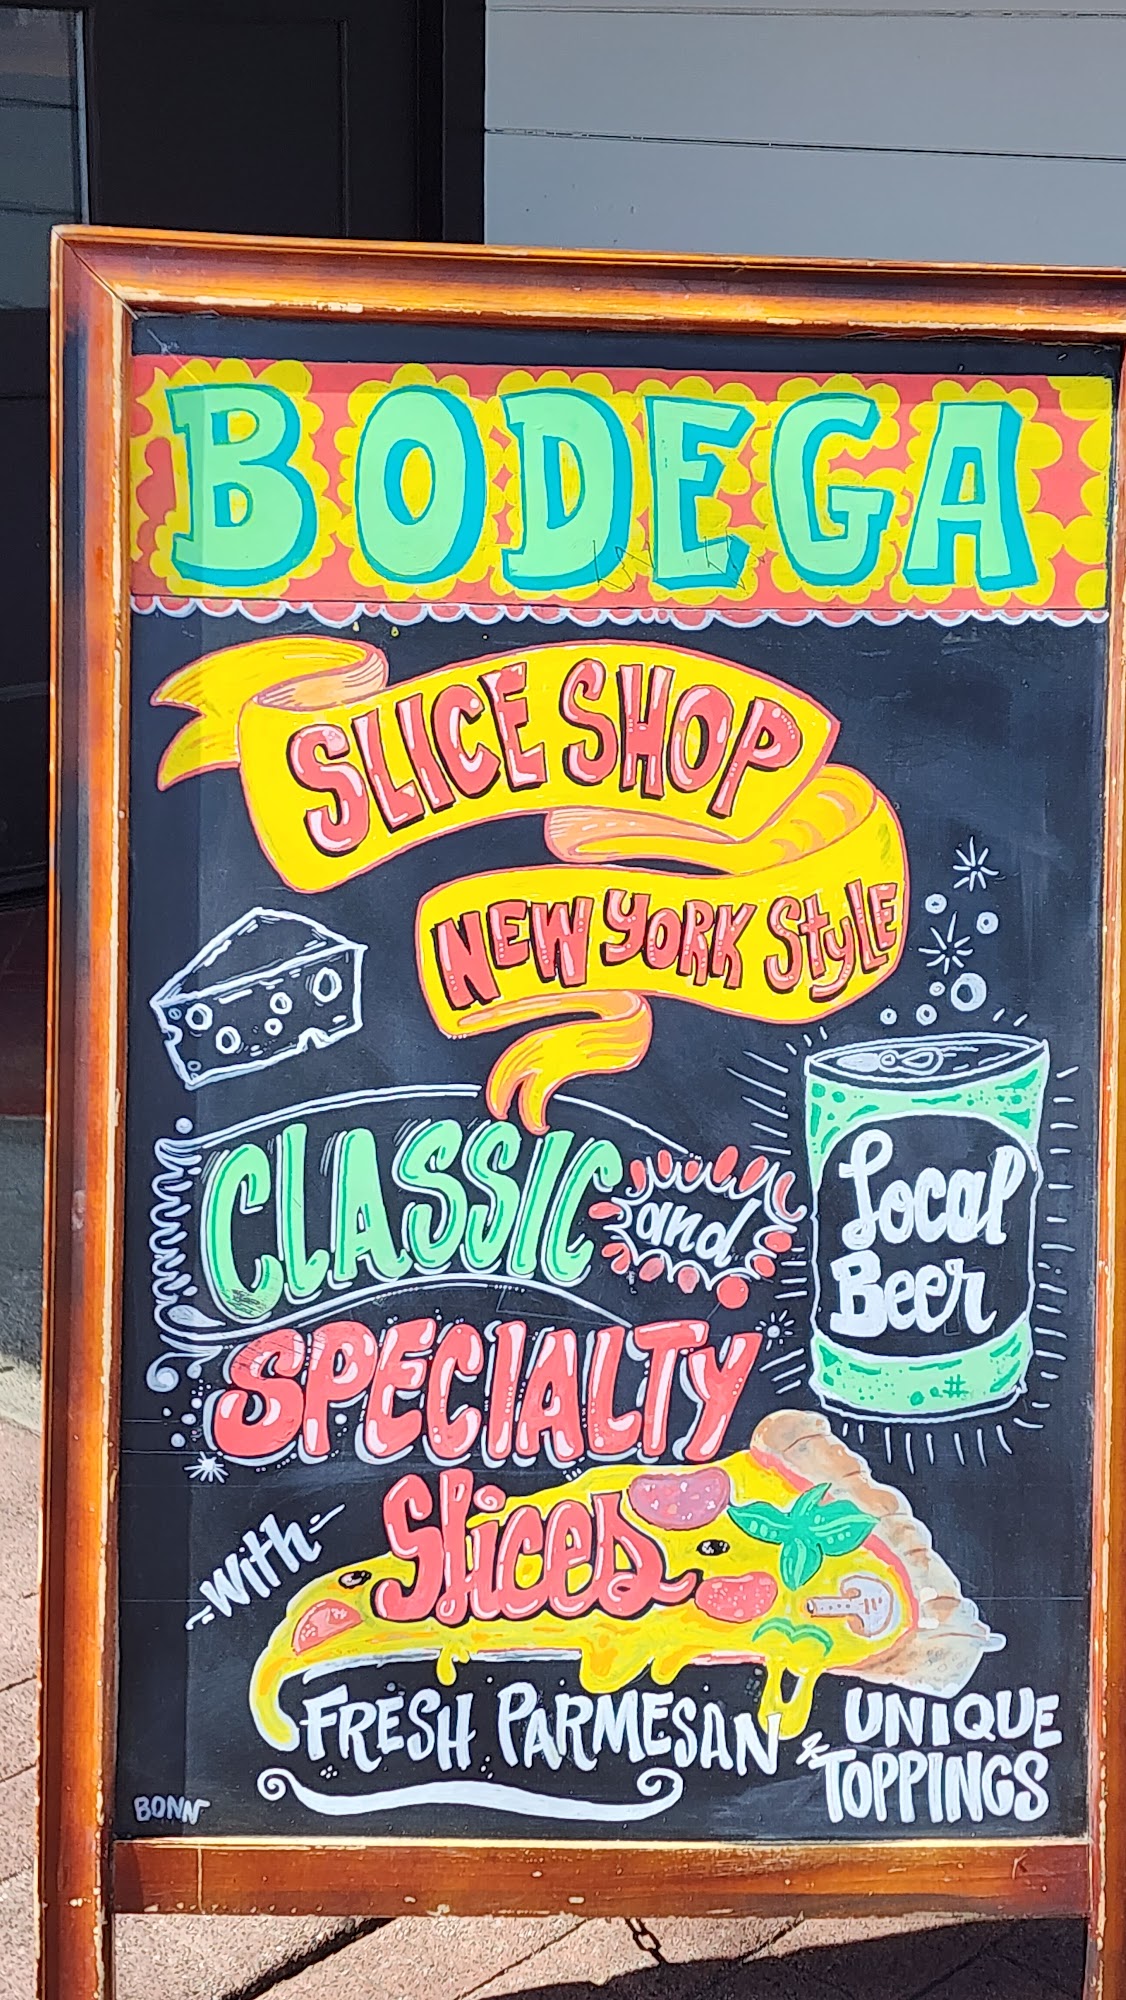 BODEGA
SLICE SHOP
NEW YORK StyLE
CLASSIC and
Local
Beer
SPECIALTY
Slices
with
FRESH PARMESAN
UNIQUE
TOPPINGS
BONN